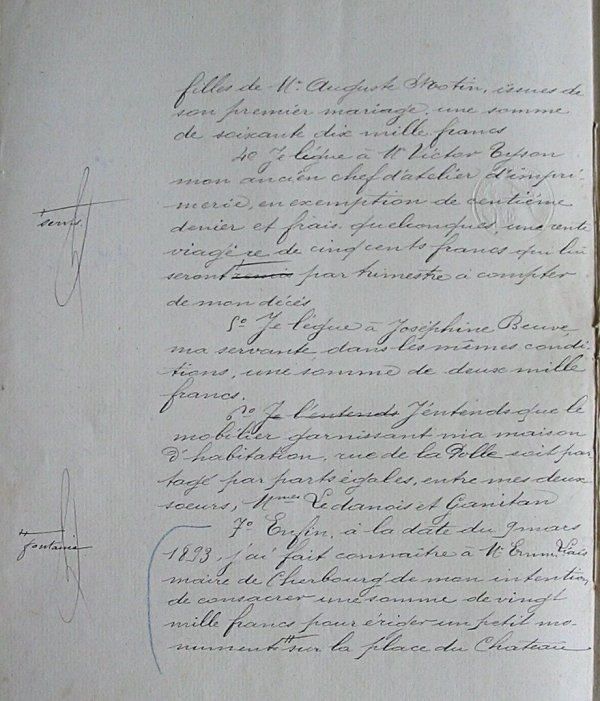 filles de Mr Auguste Motin, issues de
son premier mariage, une somme
de soixante dix mille francs
4o Je lègue à Mr Victor Tyson
mon ancien chef d'atelier d'impri-
merie, en exemption de centième
denier et frais quelconques, une rente
viagère de cinq cents francs qui lui
seront remis par trimestre à compter
de mon décès
5o Je lègue à Joséphine Beuve
ma servante dans les mêmes condi-
tions, une somme de deux mille
francs.
6o Je l'entends J'entends que le
mobilier garnissant ma maison
d'habitation, rue de la Polle soit par
tagé par parts égales, entre mes deux
soeurs, Mmes Ledanois et Ganitan
7o Enfin, à la date du 9 mars
1893, j'ai fait connaître à Mr Emm. Liais
maire de Cherbourg de mon intention
de consacrer une somme de vingt
mille francs pour ériger un petit mo-
nument # sur la place du Chateau
servis
# fontaine